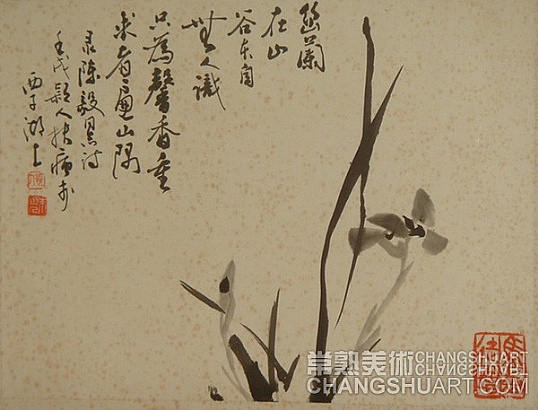 幽蘭
在山
谷本自
無人識
只為馨香重
求者遍山隅
录陳毅同志詩
壬戌穎人扶病于
西子湖上
常熟美術 CHANGSHUART
CHANGSHUART
CHANGSHUART.COM